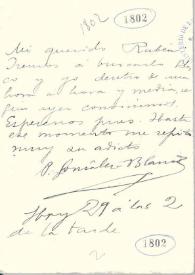 1802
1802
Mi querido Rubén:
Iremos á buscarle Bl
co y yo dentro de una
hora ú hora y media, se
gún ayer convinimos.
Espérenos pues. Hasta
ese momento me repito
muy su adicto
P. González-Blanco
Hoy 29 á las 2
de la tarde
1802
2